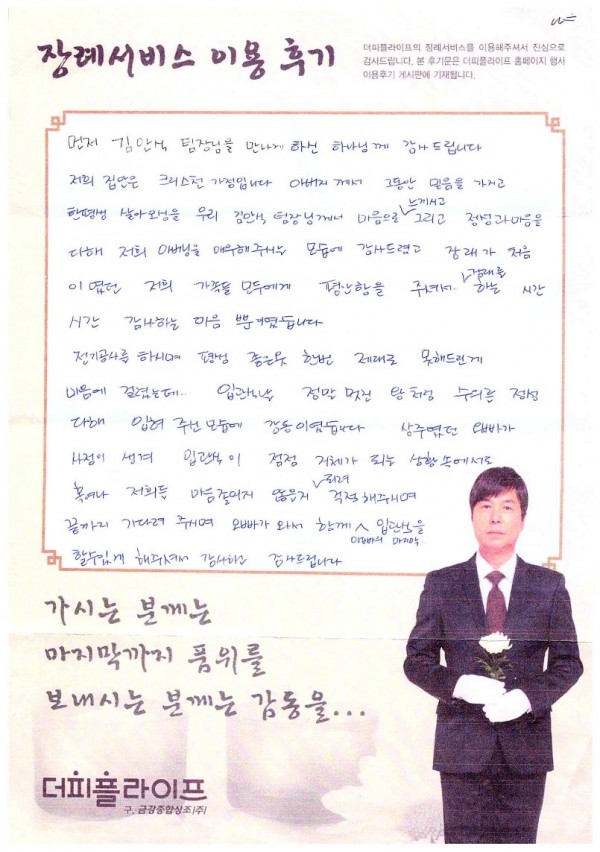 장례서비스 이용 후기
더피플라이프의 장례서비스를 이용해주셔서 진심으로
감사드립니다. 본 후기문은 더피플라이프 홈페이지 행사
이용후기 게시판에 기재됩니다.
먼저 김안석 팀장님을 만나게 하신 하나님께 감사드립니다
저희 집안은 크리스천 가정입니다 아버지께서 그동안 믿음을 가지고
한평생 살아오셨음을 우리 김안석 팀장님께서 마음으로 느끼시고 그리고 정성과 마음을
다해 저희 아버님을 예우해주시는 모습에 감사드렸고 장례가 처음
이였던 저희 가족들 모두에게 평안함을 주셔서.. 장례를 하는 시간
시간 감사하는 마음 뿐이였습니다
전기공사를 하시며 평생 좋은옷 한번 제대로 못해드린게
마음에 걸렸는데.. 입관식날 정말 멋진 왕처럼 수의를 정성
다해 입혀 주신 모습에 감동이였습니다 상주였던 오빠가
사정이 생겨 입관식이 점점 지체가 되는 상황 속에서도
혹여나 저희들 마음졸이지 않을지 되려 걱정해주시며
끝까지 기다려 주시며 오빠가 와서 함께 아빠의 마지막 입관식을
할수있게 해주셔서 감사하고 감사드립니다
가시는 분께는
마지막까지 품위를
보내시는 분께는 감동을...
더피플라이프
구. 금강종합상조(주)